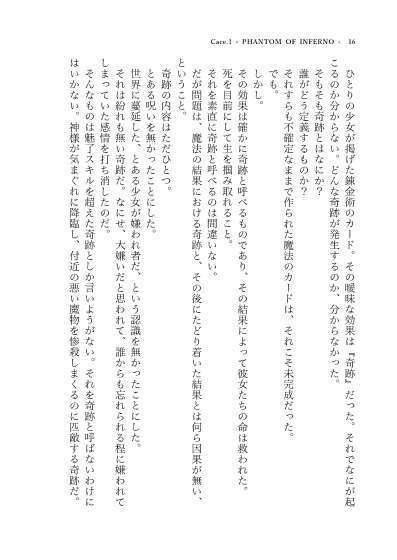 Care.1 - PHANTOM OF INFERNO - 16
ひとりの少女が掲げた錬金術のカード。その曖昧な効果は『奇跡』だった。それでなにが起
こるのか分からない。どんな奇跡が発生するのか、分からなかった。
そもそも奇跡とはなにか？
誰がどう定義するものか？
それすらも不確定なままで作られた魔法のカードは、それこそ未完成だった。
でも。
しかし。
その効果は確かに奇跡と呼べるものであり、その結果によって彼女たちの命は救われた。
死を目前にして生を掴み取れること。
それを素直に奇跡と呼べるのは間違いない。
だが問題は、魔法の結果における奇跡と、その後にたどり着いた結果とは何ら因果が無い、
ということ。
奇跡の内容はただひとつ。
とある呪いを無かったことにした。
世界に蔓延した、とある少女が嫌われ者だ、という認識を無かったことにした。
それは紛れも無い奇跡だ。なにせ、大嫌いだと思われて、誰からも忘れられる程に嫌われて
しまっていた感情を打ち消したのだ。
そんなものは魅了スキルを超えた奇跡としか言いようがない。それを奇跡と呼ばないわけに
はいかない。神様が気まぐれに降臨し、付近の悪い魔物を惨殺しまくるのに匹敵する奇跡だ。